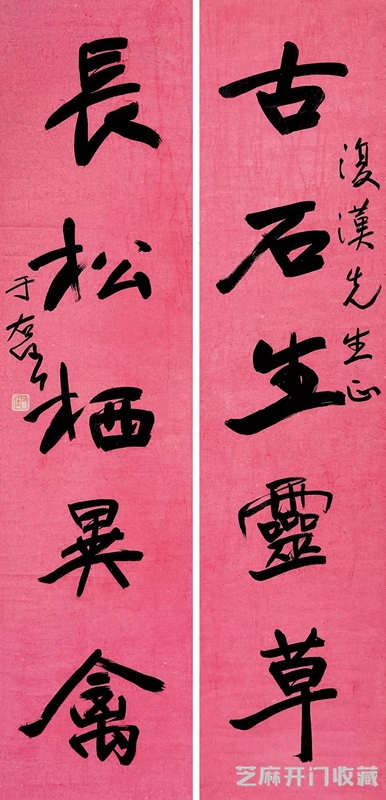 復漢先生正
古石生靈草
長松栖異禽
于右任
芝麻开门收藏